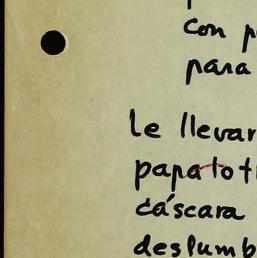 con p
para
Le llevar
papa tot
cáscara
deslumb